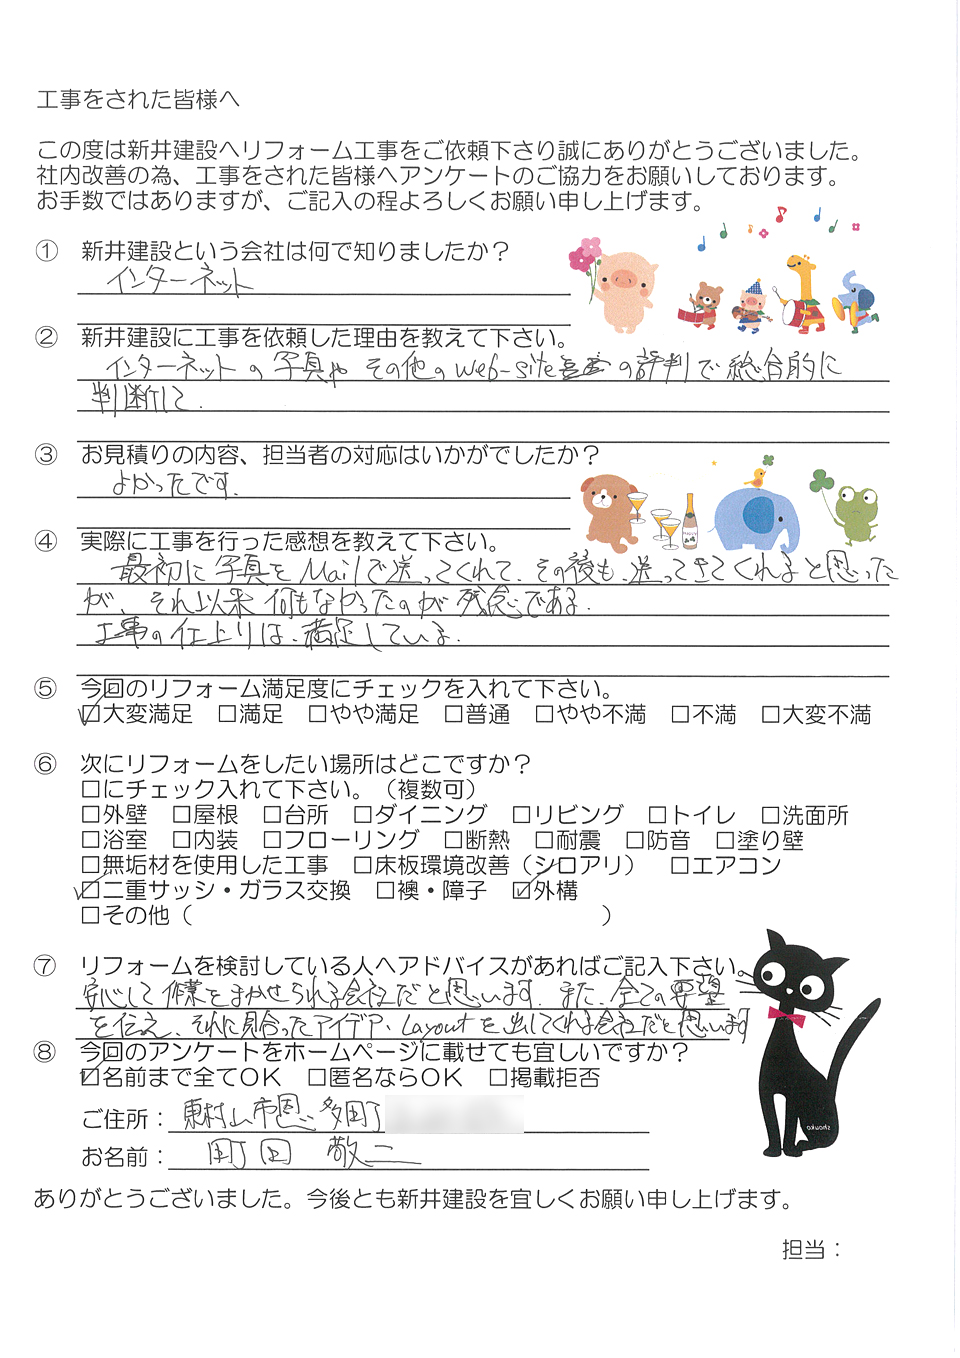 工事をされた皆様へ
この度は新井建設へリフォーム工事をご依頼下さり誠にありがとうございました。
社内改善の為、工事をされた皆様へアンケートのご協力をお願いしております。
お手数ではありますが、ご記入の程よろしくお願い申し上げます。
① 新井建設という会社は何で知りましたか？
インターネット
② 新井建設に工事を依頼した理由を教えて下さい。
インターネットの写真や その他のweb-site の評判で総合的に
判断して.
③ お見積りの内容、担当者の対応はいかがでしたか？
よかったです.
④ 実際に工事を行った感想を教えて下さい。
最初に写真をMailで送ってくれて、その後も、送ってきてくれると思った
が、それ以来何もなかったのが残念である.
工事の仕上りは、満足している.
⑤ 今回のリフォーム満足度にチェックを入れて下さい。
☑大変満足 □満足 □やや満足 □普通 □やや不満 □不満 □大変不満
⑥ 次にリフォームをしたい場所はどこですか？
□にチェック入れて下さい。（複数可）
□外壁 □屋根 □台所 □ダイニング □リビング □トイレ □洗面所
□浴室 □内装 □フローリング □断熱 □耐震 □防音 □塗り壁
□無垢材を使用した工事 □床板環境改善（シロアリ） □エアコン
☑二重サッシ・ガラス交換 □襖・障子 ☑外構
□その他（ ）
⑦ リフォームを検討している人へアドバイスがあればご記入下さい。
安心して作業をまかせられる会社だと思います. また、全ての要望
を伝え、それに見合ったアイデア、Layoutを出してくれる会社だと思います
⑧ 今回のアンケートをホームページに載せても宜しいですか？
☑名前まで全てOK □匿名ならOK □掲載拒否
ご住所：東村山市恩多町
お名前：町田 敬二
shouko
ありがとうございました。今後とも新井建設を宜しくお願い申し上げます。
担当：